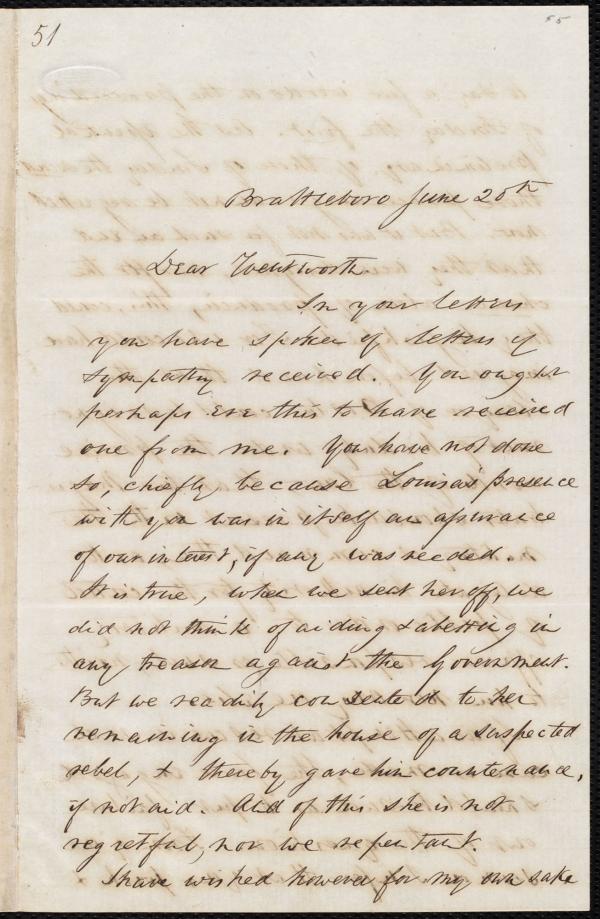 51
55
Brattleboro June 20th
Dear Wentworth.
In your letters
you have spoken of letters of
sympathy received. You ought
perhaps ere this to have received
one from me. You have not done
so, chiefly because Louisa's presence
with you was in itself an assurance
of our interest, if any was needed.
It is true, when we sent her off, we
did not think of aiding & abetting in
any treason against the Government.
But we readily consented to her
remaining in the house of a suspected
rebel, & thereby gave him countenance,
if not aid. And of this she is not
regretful, nor we repentant.
I have wished however for my own sake